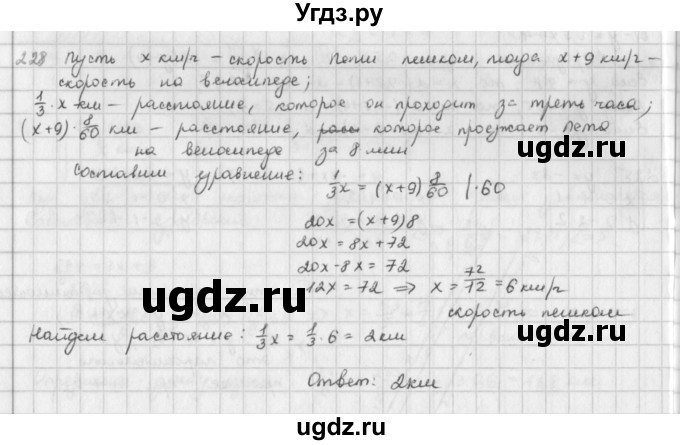 Угдз.ру
228 Пусть x км/ч – скорость Пети пешком, тогда x+9 км/ч –
скорость на велосипеде;
1/3 · x км – расстояние, которое он проходит за треть часа;
(x+9) · 8/60 км – расстояние, которое проезжает Петя
на велосипеде за 8 мин
ugdz.ru
Составим уравнение:
1/3x = (x+9) 8/60 | · 60
20x = (x+9)8
20x = 8x+72
ugdz.ru ugdz.ru
20x-8x = 72
12x = 72 ⇒ x = 72/12 = 6 км/ч
скорость пешком
Найдем расстояние: 1/3x = 1/3 · 6 = 2км
ugdz.ru
Ответ: 2км
ugdz.ru